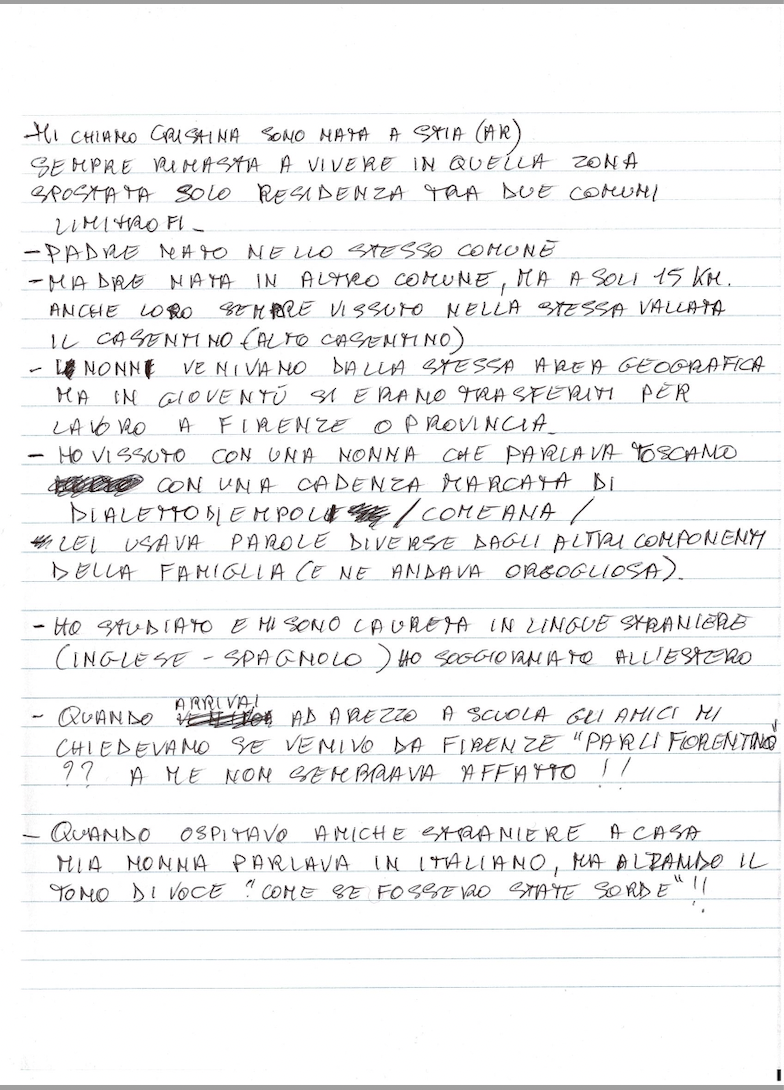 - MI CHIAMO CRISTINA SONO NATA A STIA (AR)
SEMPRE RIMASTA A VIVERE IN QUELLA ZONA
SPOSTATA SOLO RESIDENZA TRA DUE COMUNI
LIMITROFI _
- PADRE NATO NELLO STESSO COMUNE
- MADRE NATA IN ALTRO COMUNE, MA A SOLI 15 KM.
ANCHE LORO SEMPRE VISSUTO NELLA STESSA VALLATA
IL CASENTINO (ALTO CASENTINO)
- NONNI VENIVANO DALLA STESSA AREA GEOGRAFICA
MA IN GIOVENTÙ SI ERANO TRASFERITI PER
LAVORO A FIRENZE O PROVINCIA_
- HO VISSUTO CON UNA NONNA CHE PARLAVA TOSCANO
CON UNA CADENZA MARCATA DI
DIALETTO DI EMPOLI / COMEANA /
LEI USAVA PAROLE DIVERSE DAGLI ALTRI COMPONENTI
DELLA FAMIGLIA (E NE ANDAVA ORGOGLIOSA).
- HO STUDIATO E MI SONO LAURETA IN LINGUE STRANIERE
(INGLESE - SPAGNOLO) HO SOGGIORNATO ALL'ESTERO
- QUANDO ARRIVAI AD AREZZO A SCUOLA GLI AMICI MI
CHIEDEVANO SE VENIVO DA FIRENZE "PARLI FIORENTINO"
?? A ME NON SEMBRAVA AFFATTO !!
- QUANDO OSPITAVO AMICHE STRANIERE A CASA
MIA NONNA PARLAVA IN ITALIANO, MA ALZANDO IL
TONO DI VOCE "COME SE FOSSERO STATE SORDE"!!